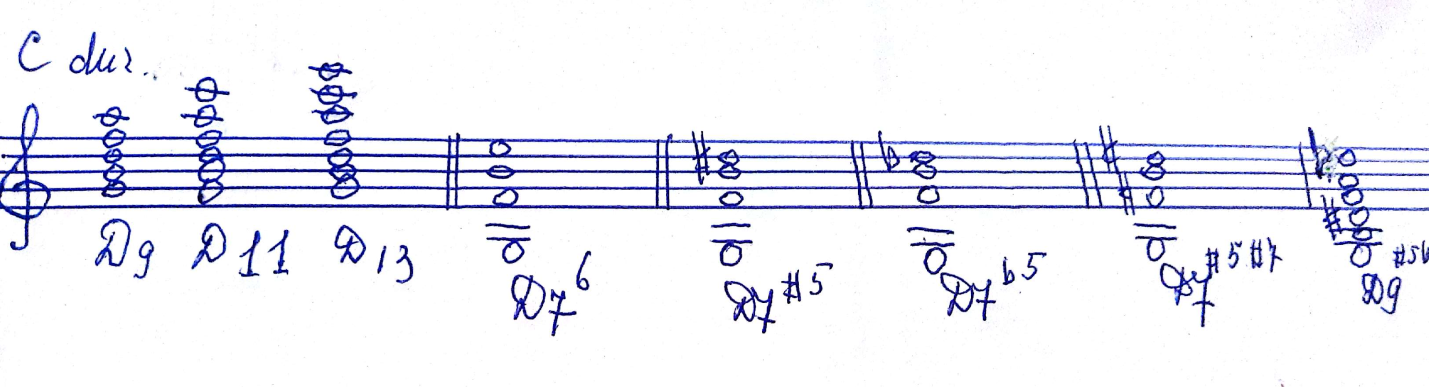 C dur.
D9 D11 D13 D7⁶ D7#5 D7b5 D7#5#7 D9#5b